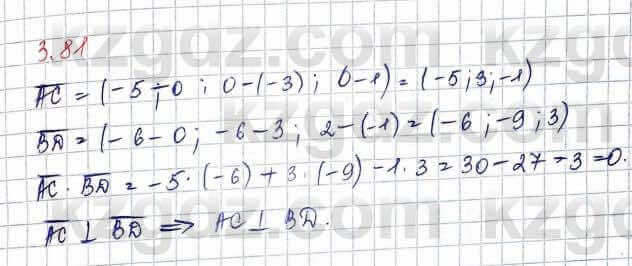 3.81
AC = (-5-0 ; 0-(-3) ; 0-1) = (-5; 3; -1)
BD = (-6-0; -6-3; 2-(-1) = (-6; -9; 3)
AC · BD = -5·(-6) + 3·(-9) - 1·3 = 30-27-3=0.
AC ⊥ BD ⇒ AC ⊥ BD.
kzgdz.com